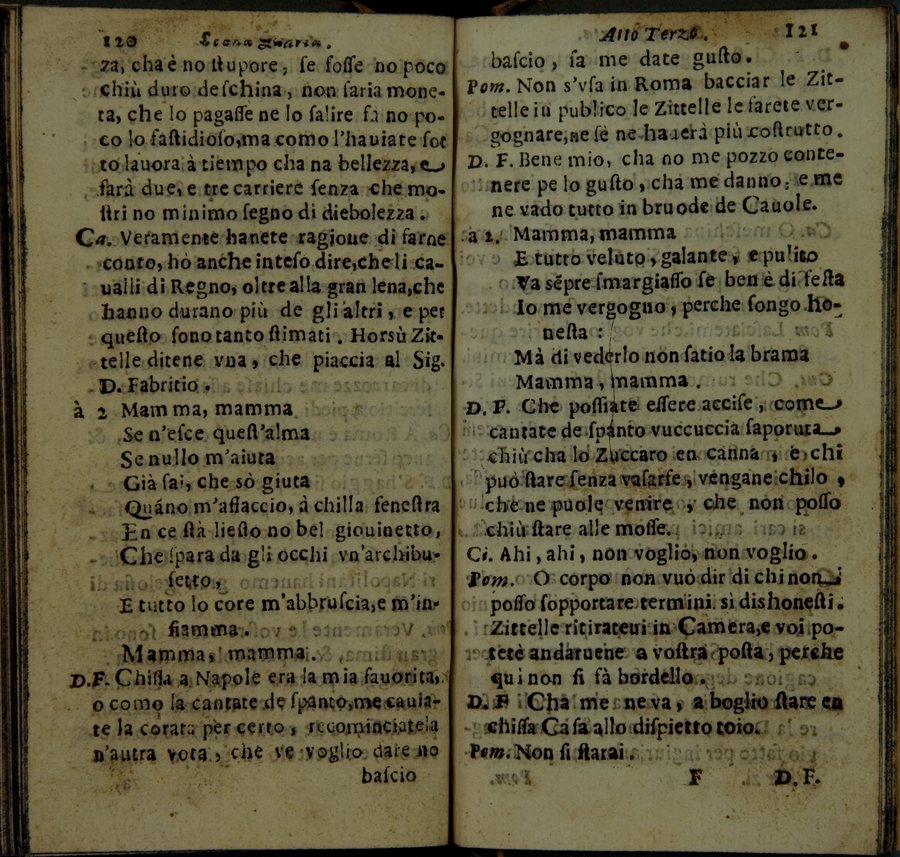 120 Scena Quarta.
za, cha è no stupore, se fosse no poco
chiù duro de schina, non saria mone-
ta, che lo pagasse ne lo salire fà no po-
co lo fastidioso, ma como l'hauiate sot
to lauora à tiempo cha na bellezza, e
farà due, e tre carriere senza che mo-
stri no minimo segno di diebolezza.
Ca. Veramente hauete ragione di farne
conto, hò anche inteso dire, che li ca-
ualli di Regno, oltre alla gran lena, che
hanno durano più de gli altri, e per
questo sono tanto stimati. Horsù Zit-
telle ditene vna, che piaccia al Sig.
D. Fabritio.
à 2 Mamma, mamma
Se n'esce quest'alma
Se nullo m'aiuta
Già sai, che sò giuta
Quãno m'affaccio, à chilla fenestra
En ce stà liesto no bel giouinetto,
Che spara da gli occhi vn'archibu-
setto,
E tutto lo core m'abbruscia, e m'in-
fiamma.
Mamma, mamma.
D.F. Chissa a Napole era la mia fauorita,
o como la cantate de spanto, me cauia-
te la corata per certo, recominciatela
n'autra vota, che ve voglio dare no
bascio
Atto Terzo. 121
bascio, sa me date gusto.
Pom. Non s'vsa in Roma bacciar le Zit-
telle in publico le Zittelle le farete ver-
gognare, ne se ne hauerà più costrutto.
D. F. Bene mio, cha no me pozzo conte-
nere pe lo gusto, cha me danno, e me
ne vado tutto in bruode de Cauole.
a 2. Mamma, mamma
E tutto veluto, galante, e pulito
Va sẽpre smargiasso se ben è di festa
Io me vergogno, perche songo ho-
nesta:
Mà di vederlo non satio la brama
Mamma, mamma.
D. F. Che possiate essere accise, come
cantate de spanto vuccuccia saporuta
chiù cha lo Zuccaro en canna, e chi
può stare senza vasarse, vengane chilo,
che ne puole venire, che non posso
chiù stare alle mosse.
Ci. Ahi, ahi, non voglio, non voglio.
Pom. O corpo non vuò dir di chi non
posso sopportare termini sì dishonesti.
Zittelle ritirateui in Camera, e voi po-
tete andaruene a vostra posta, perche
qui non si fà bordello.
D. F Cha me ne va, a boglio stare en
chissa Casa allo dispietto toio.
Pom. Non si starai.
F D. F.